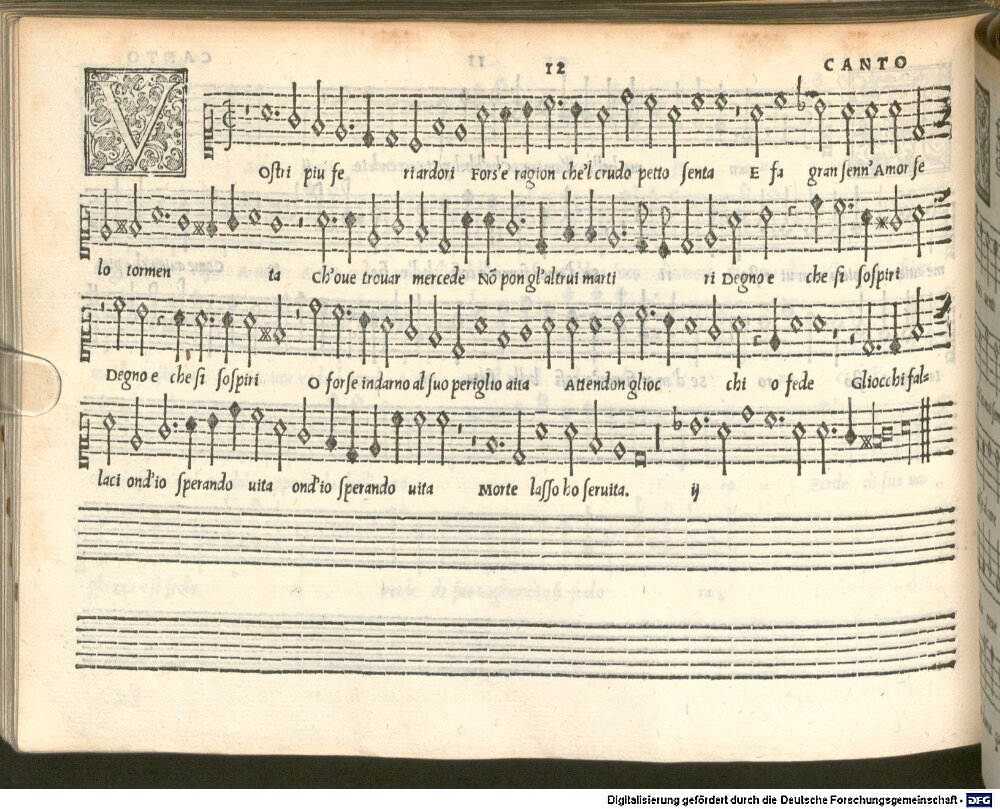 12 CANTO
VOstri piu fe ri ardori Fors'e ragion che'l crudo petto senta E fa gran senn'Amor se
lo tormen ta Ch'oue trouar mercede Nō pon gl'altrui marti ri Degno e che si sospiri
Degno e che si sospiri O forse indarno al suo periglio aita Attendon gliocc chi o fede Gliocchi fals
laci ond'io sperando uita ond'io sperando uita Morte lasso ho seruita. ij
Digitalisierung gefördert durch die Deutsche Forschungsgemeinschaft - DFG